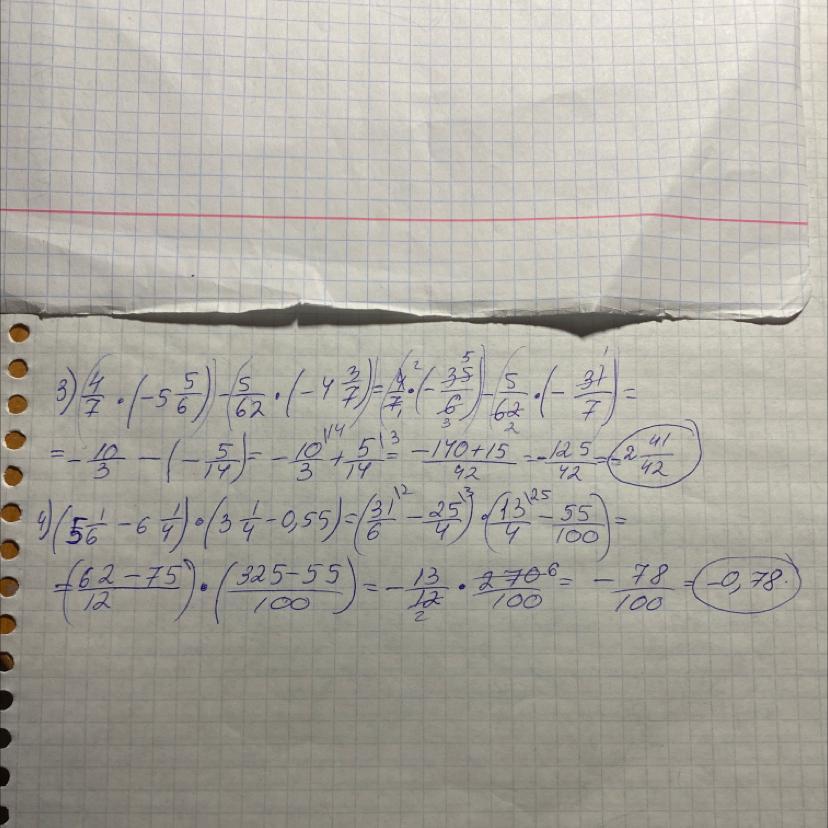 3) (4/7 · (-5 5/6)) - (5/62 · (-4 3/7)) = (4/7 · (-35/6)) - 5/62 · (-31/7) =
= -10/3 - (-5/14) = -10/3 \14 + 5/14 \3 = -140+15/42 = -125/42 = -2 41/42
4) (5 1/6 - 6 1/4) · (3 1/4 - 0,55) = (31/6 \2 - 25/4 \3) · (13/4 \25 - 55/100) =
= (62-75/12) · (325-55/100) = -13/12 · 270/100 = -78/100 = -0,78.